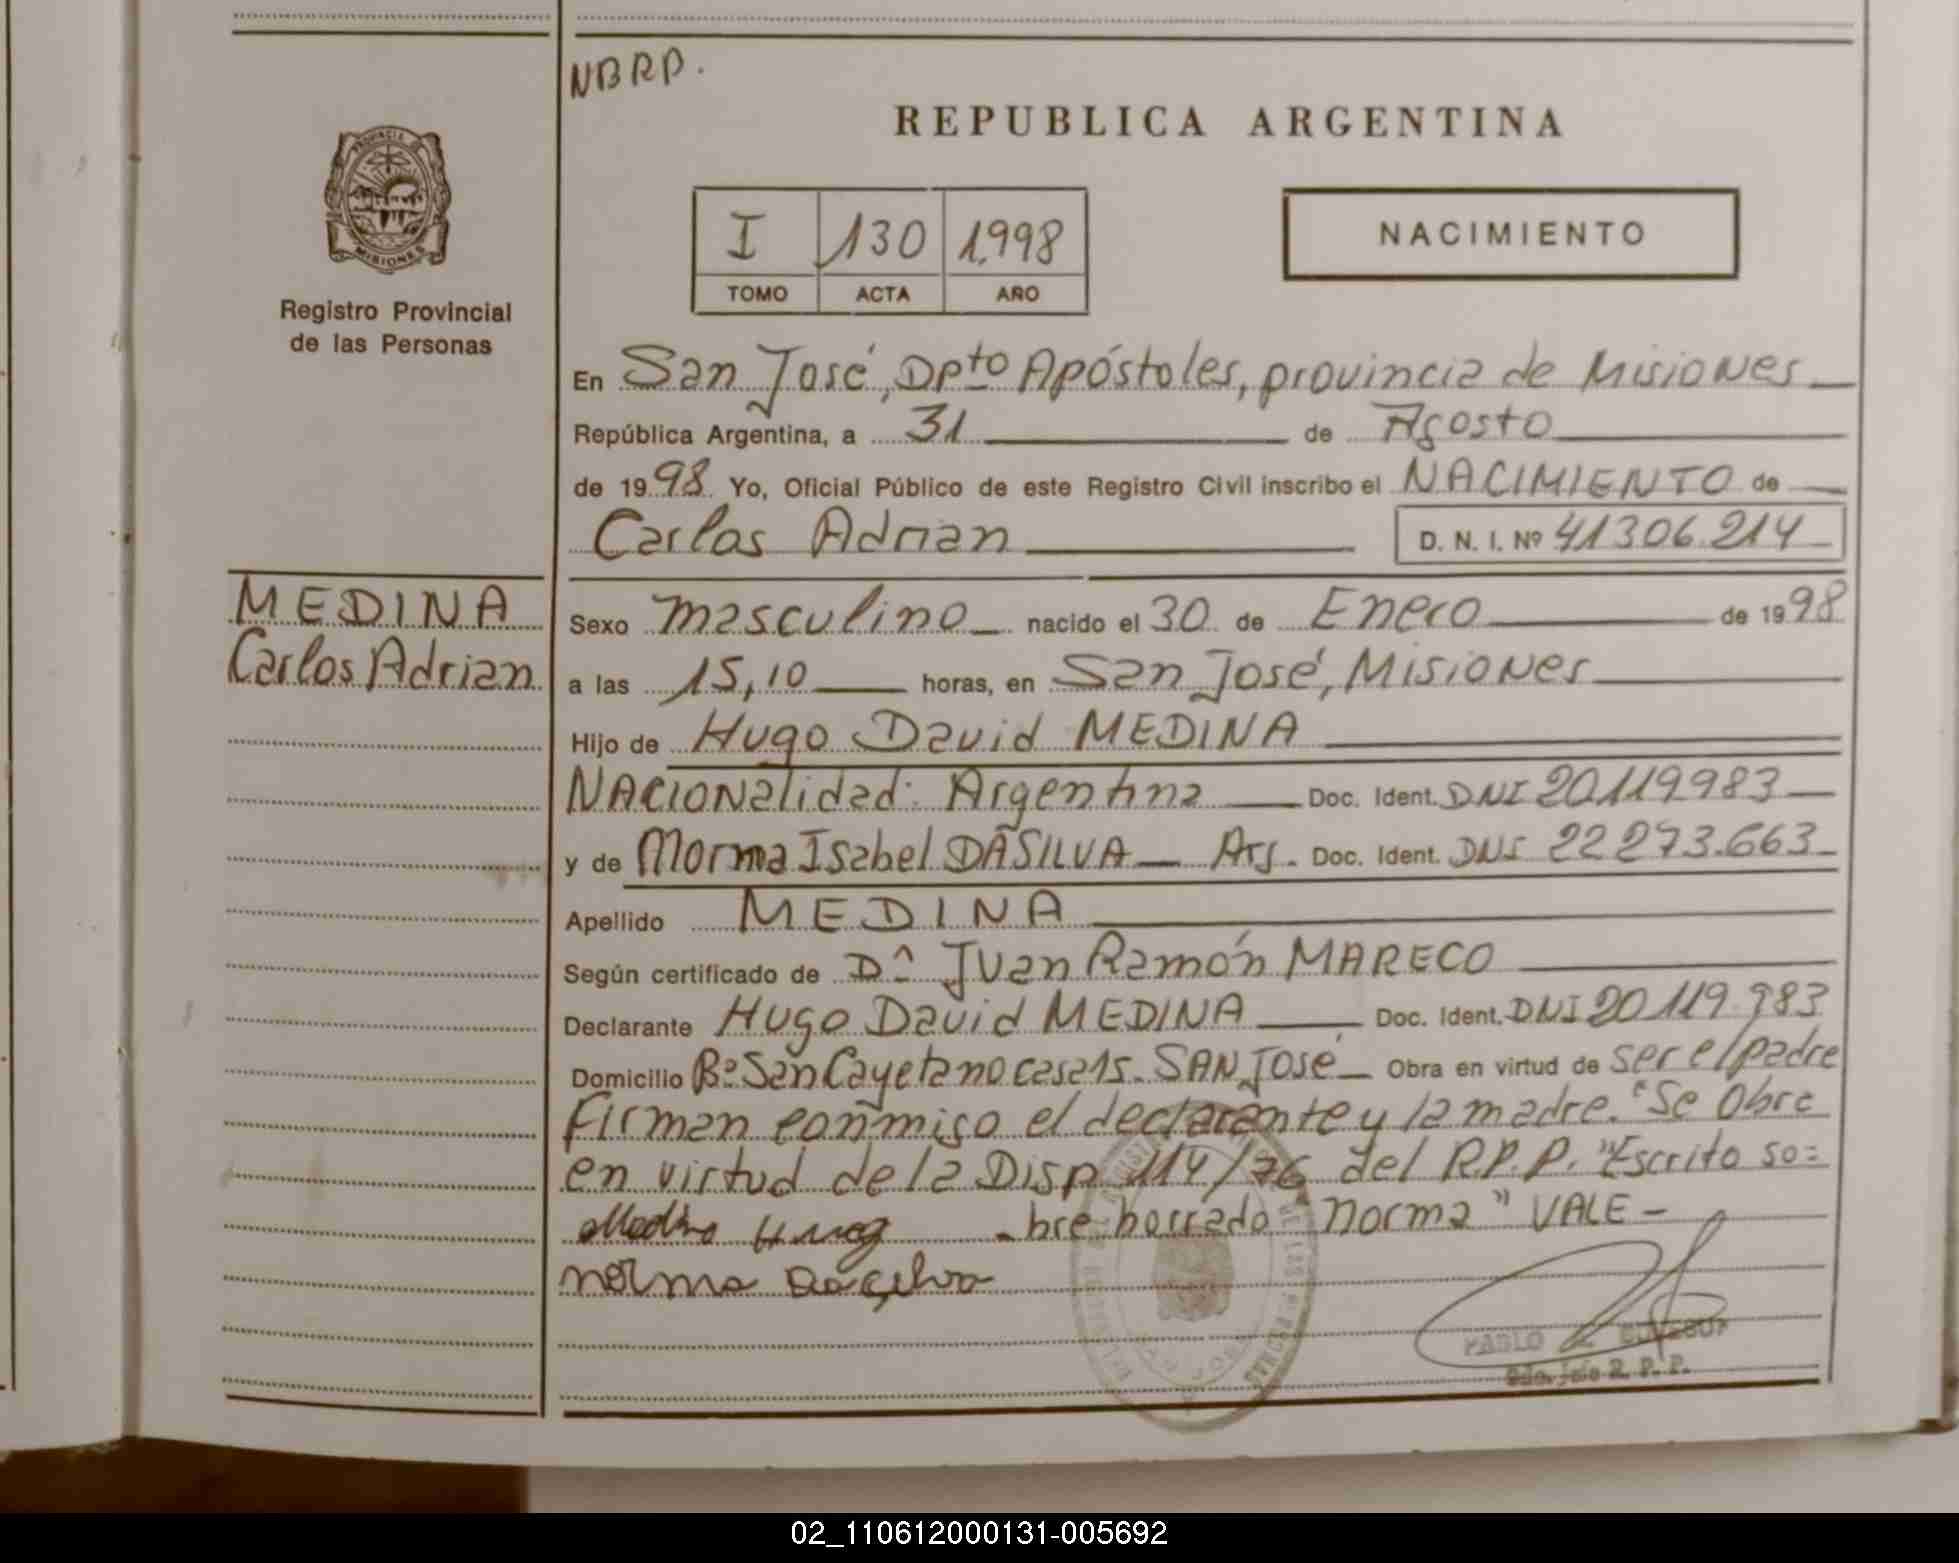 NBRP.
REPUBLICA ARGENTINA
PROVINCIA DE
MISIONES
I 130 1.998
TOMO ACTA AÑO
NACIMIENTO
Registro Provincial
de las Personas
En San José, Dpto Apóstoles, provincia de Misiones
República Argentina, a 31 de Agosto
de 1998 Yo, Oficial Público de este Registro Civil inscribo el NACIMIENTO de
Carlos Adrian D. N. I. Nº 41306.214
MEDINA
Carlos Adrian
Sexo masculino nacido el 30 de Enero de 1998
a las 15,10 horas, en San José, Misiones
Hijo de Hugo David MEDINA
NACIONalidad: Argentina Doc. Ident. DNI 20.119.983
y de Morma Isabel DASILVA Arg. Doc. Ident. DNI 22273.663
Apellido MEDINA
Según certificado de Dn Juan Ramón MARECO
Declarante Hugo David MEDINA Doc. Ident. DNI 20119.983
Domicilio Bº San Cayetano casa 15. SAN José Obra en virtud de ser el padre
Firman conmigo el declarante y la madre. "Se Obra
en virtud de la Disp. 114/76 del R.P.P. "Escrito so=
Medina Hugo bre borrado norma" VALE -
norma
DE LAS PERSONAS
PABLO
R. P. P.
02_110612000131-005692